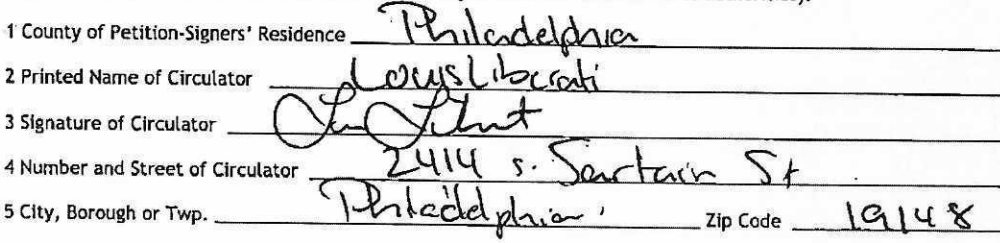 1 County of Petition-Signers' Residence Philadelphia
2 Printed Name of Circulator Louis Liberati
3 Signature of Circulator
4 Number and Street of Circulator 2414 S. Sartain St
5 City, Borough or Twp. Philadelphia Zip Code 19148